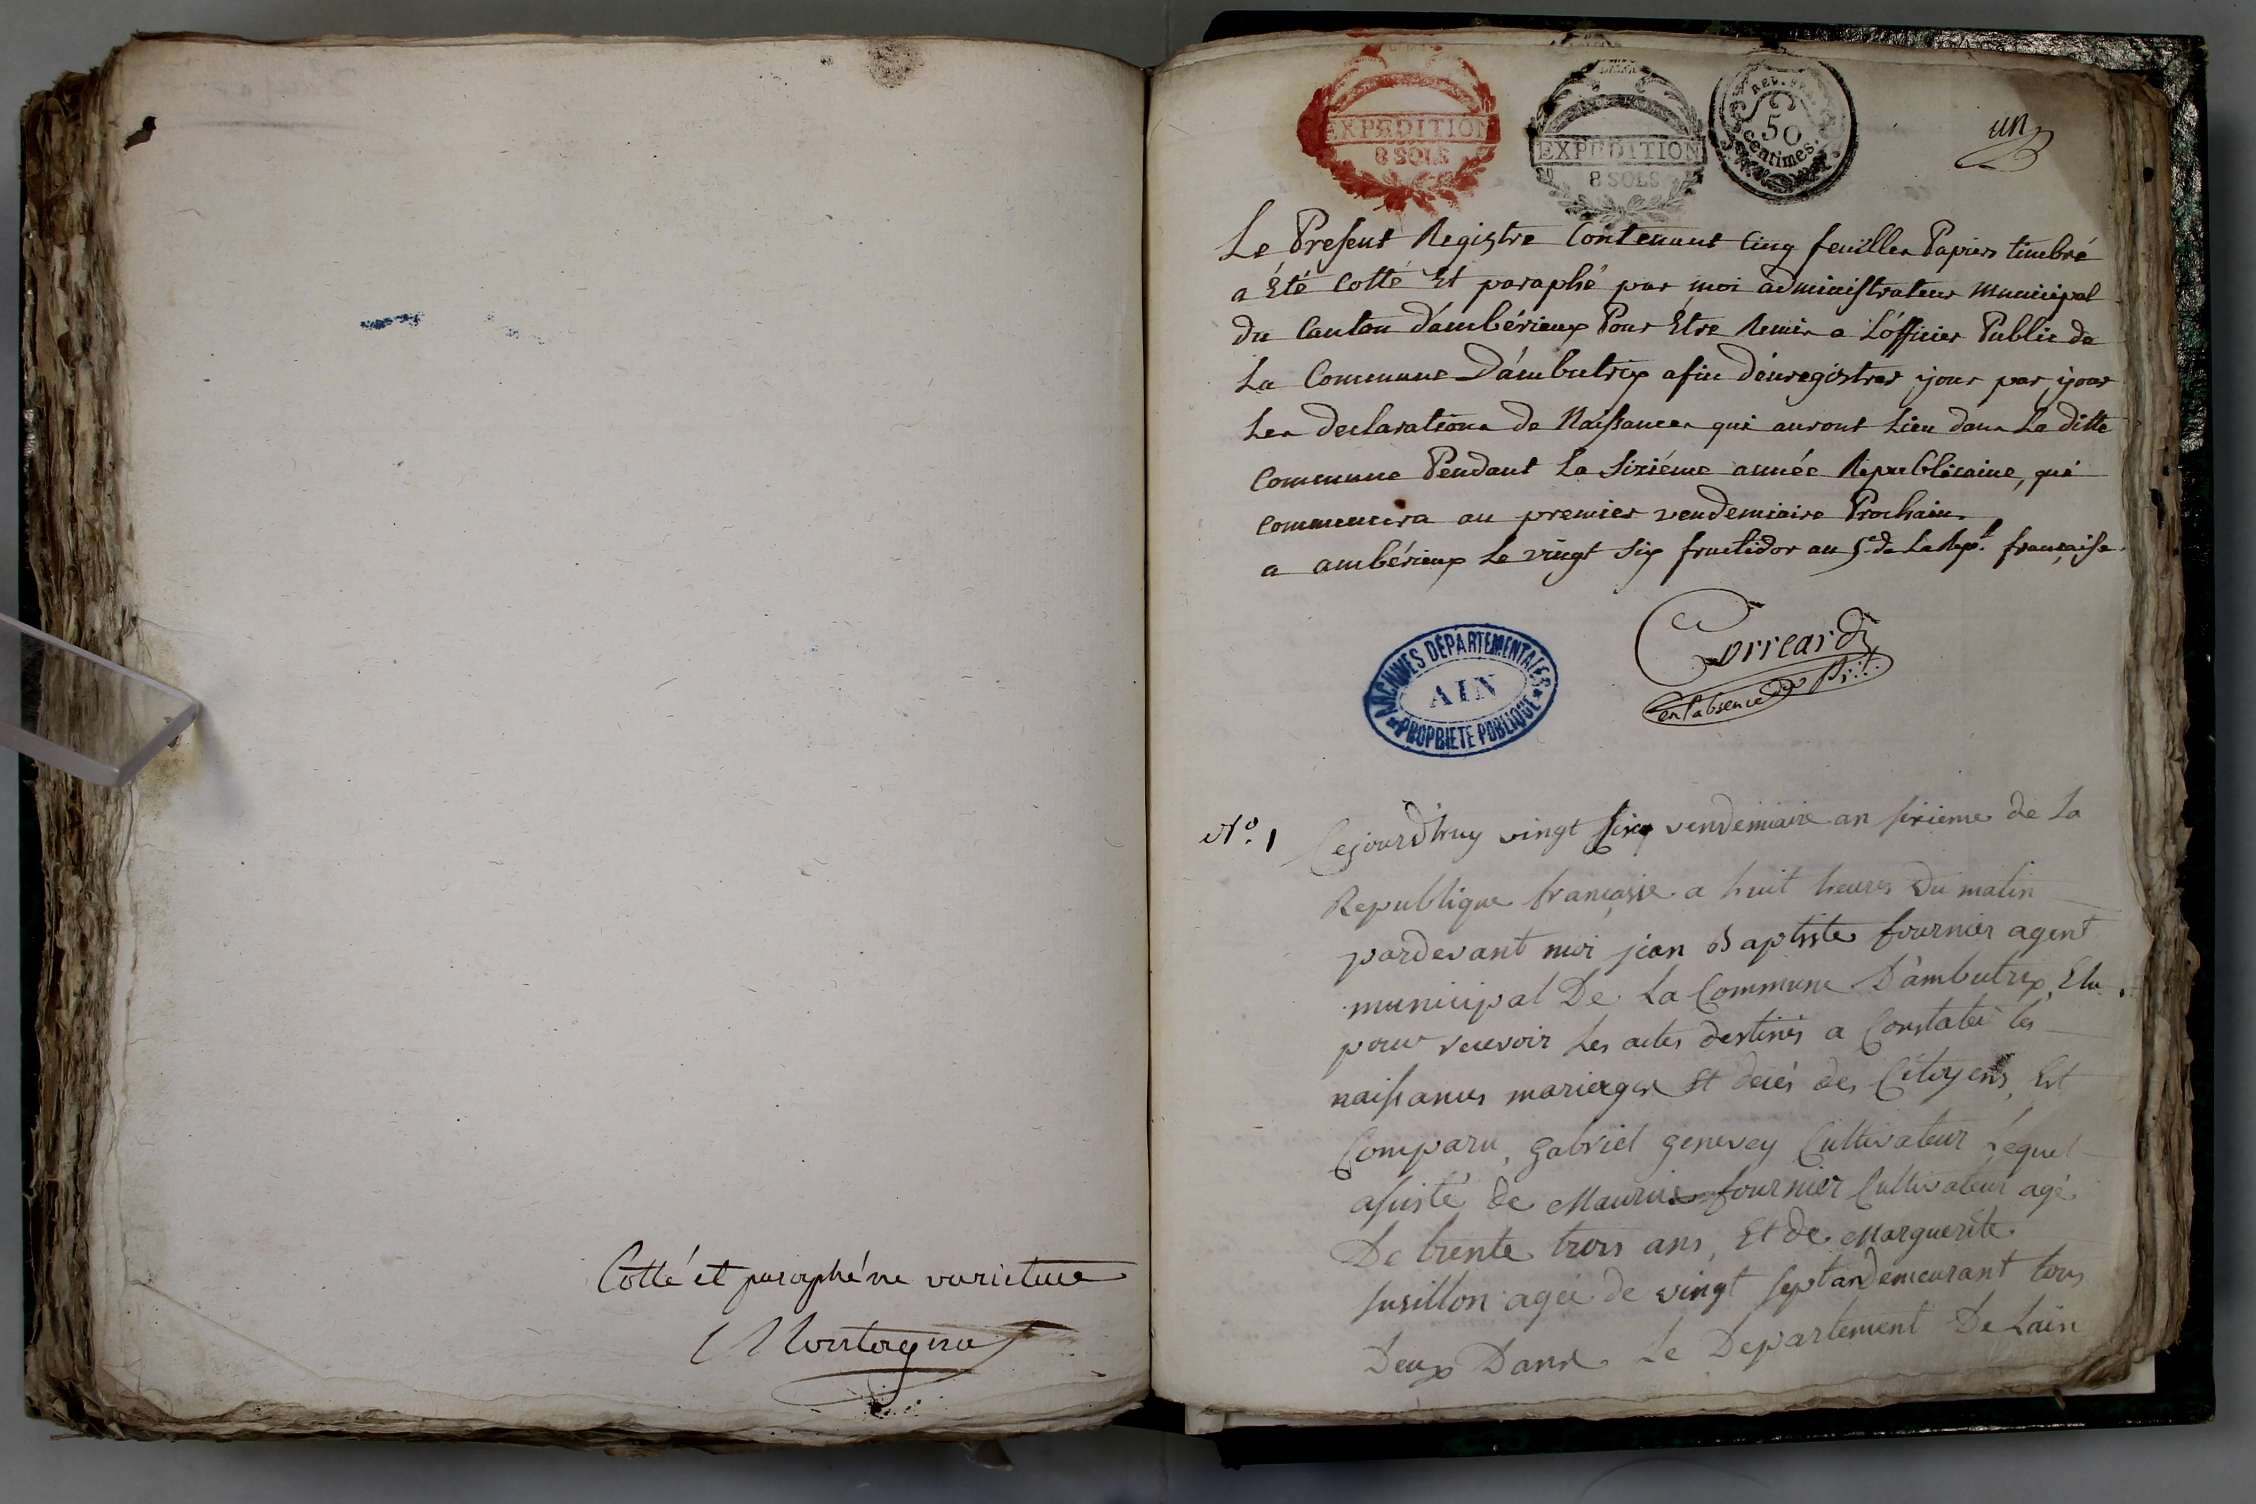 Cotté et paraphé ne varietur
Montagnat
EXPEDITION
8 SOLS
EXPEDITION
8 SOLS
50
centimes.
un
Le Present Registre Contenant Cinq feuilles Papiers timbré
a Eté Cotté Et paraphé par moi administrateur municipal
du Canton d'ambérieux Pour Etre Remis a L'officier Public de
La Commune D'ambutrix afin d'énregistrer jour par jour
Les declarations de Naissances qui auront Lieu dans La ditte
Commune Pendant La Sixiéme année Republicaine, qui
Commencera au premier vendemiaire Prochain.
a ambérieux Le vingt Six fructidor an 5e. de La Rep.e française.
Correard
en l'absence du Pr.t.
ARCHIVES DÉPARTEMENTALES
AIN
PROPRIETE PUBLIQUE
N.o 1
Cejourd'huy vingt vendemiaire an sixieme de La
Republique française a huit heures Du matin
pardevant moi jean Baptiste fournier agent
municipal De La Commune D'ambutrix, Elu
pour recevoir Les actes destinés a Constater les
naissances mariages Et decés des Citoyens, Est
Comparu, gabriel genevey Cultivateur Lequel
assisté de Maurice fournier Cultivateur agé
De trente trois ans, Et de Marguerite
susillon agée de vingt sept an demeurant tous
Deux Dans Le Departement De Lain